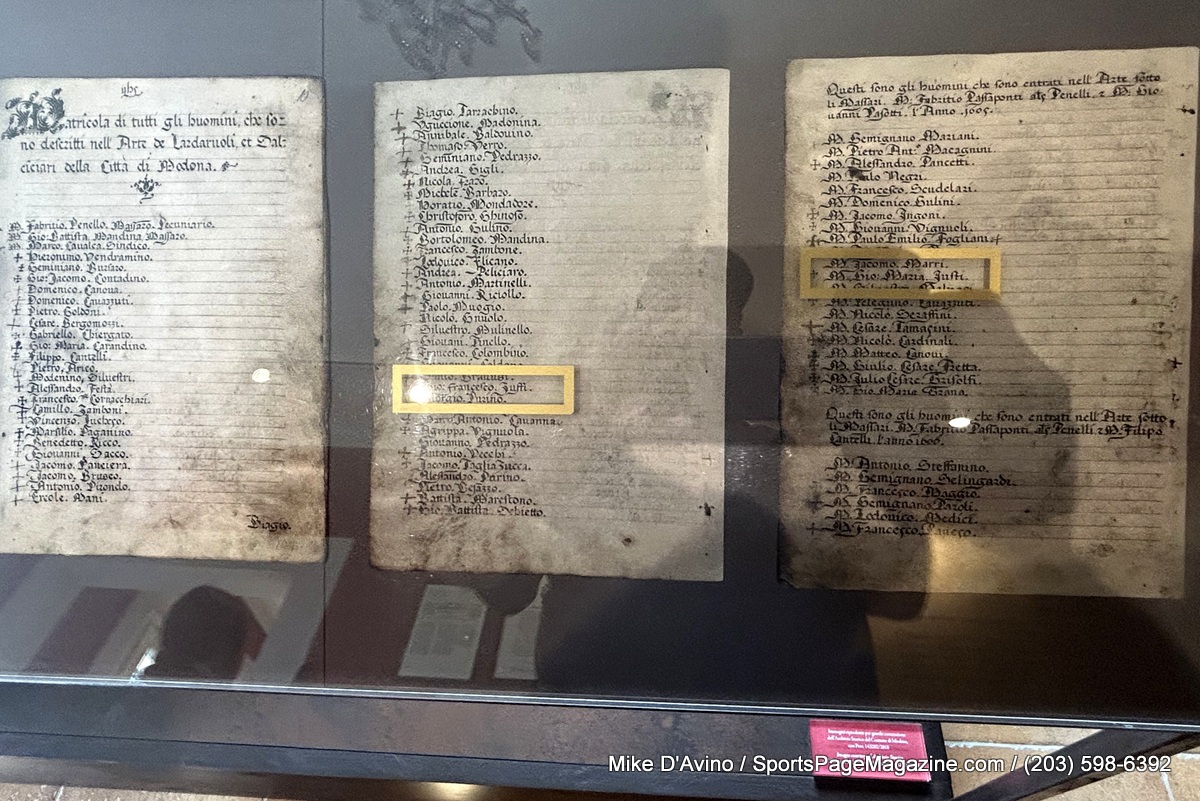 yhs
Matricola di tutti gli huomini, che so=
no descritti nell'Arte de Lardaruoli, et Sal=
cicciari della Città di Modona.
M. Fabritio. Penello. Massaro. Pecuniario.
M. Gio: Battista. Mandina. Massaro.
M. Marco. Cavalca. Sindico.
Hieronimo. Vendramino.
Geminiano. Bursaro.
Gio: Jacomo. Contadino.
Domenico. Canova.
Domenico. Cavazzuti.
Pietro. Goldoni.
Cesare. Bergomozzi.
Gabriello. Chiergato.
Gio: Maria. Carandino.
Filippo. Cantelli.
Pietro. Arico.
Modenino. Silvestri.
Alessandro. Festà.
Francesco. Cornacchiari.
Camillo. Zamboni.
Vincenzo.
Marsilio. Paganino.
Benedetto. Ricco.
Giovanni. Sacco.
Jacomo. Panciera.
Jacomo. Brusco.
Antonio. Pirondo.
Ercole. Mani.
Biagio.
Biagio. Tarrabino.
Uguccione. Madonina.
Annibale. Baldovino.
Thomaso. Verro.
Geminiano. Pedrazzo.
Andrea. Gigli.
Nicola.
Michele. Barbaro.
Horatio. Mondadore.
Christoforo. Ghinoso.
Antonio. Gulino.
Bortolomeo. Mandina.
Francesco. Zambone.
Lodovico. Flicano.
Andrea. Peliciaro.
Antonio. Martinelli.
Giovanni. Riciollo.
Paolo.
Nicolò. Gnuolo.
Silvestro. Mulinello.
Giovani. Pinello.
Francesco. Colombino.
Gio: Francesco. Zuffi.
Purino.
Marco Antonio. Cavanna.
Agrippa. Vignuola.
Giovanno. Pedrazzo.
Antonio. Vecchi.
Jacomo. Tagliazucca.
Alessandro. Purino.
Pietro.
Battista. Marestono.
Gio: Battista. Schietto.
Questi sono gli huomini che sono entrati nell'Arte sotto
li Massari. M. Fabritio Passaponti als Penelli, e M. Gio=
uanni Pasotti. l'Anno. 1605.
M. Gemignano Mariani.
M. Pietro Ant.o Macagnini
M. Alessandro. Pancetti.
M. Paulo Negri.
M. Francesco. Scudelari.
M. Domenico Gulini.
M. Jacomo Ingoni.
M. Giovanni. Vignuoli.
M. Paulo Emilio. Fogliani
M. Jacomo. Marri.
M. Gio: Maria. Zusti.
M. Pelegrino. Cavazzuti.
M. Nicolò. Seraffini.
M. Cesare. Tamacini.
M. Nicolò. Cardinali.
M. Matteo. Canovi.
M. Giulio. Cesare. Betta.
M. Julio Cesare. Grisolfi.
M. Gio Maria. Grana.
Questi sono gli huomini che sono entrati nell'Arte sotto
li Massari. M. Fabritio Passaponti als Penelli e M. Filipo
Cantelli. l'anno 1606.
M. Antonio. Steffanino.
M. Gemignano. Selingardi.
M. Francesco. Maggio.
M. Gemignano. Paroli.
M. Lodovico. Medici.
M. Francesco.
Mike D'Avino / SportsPageMagazine.com / (203) 598-6392